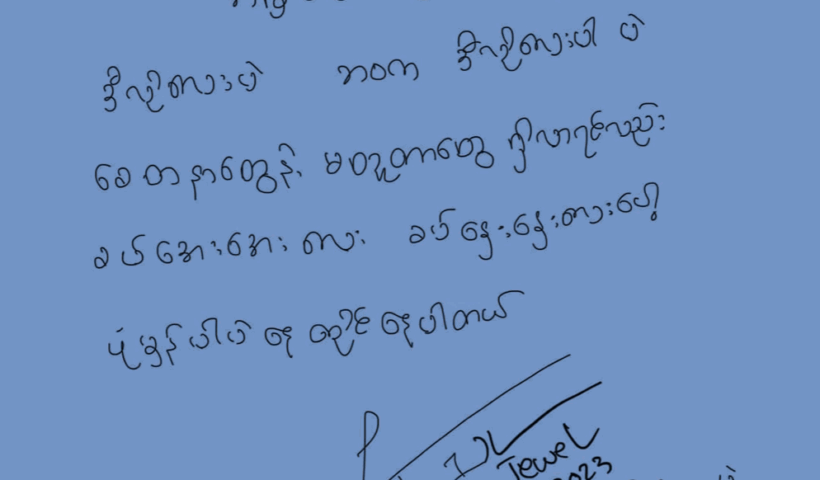 ဒီလိုလေးပဲ ဘဝက ဒီလိုလေးပါ ပဲ
စေတနာတွေနဲ့ မေတ္တာတွေ ရှိလာရင်လည်း
ခပ်အေးအေး လေး ခပ် နွေးနွေးလေးပေါ့
ပုံမှန်ပါပဲ နေ ထိုင် နေပါတယ်
Jewel
2023